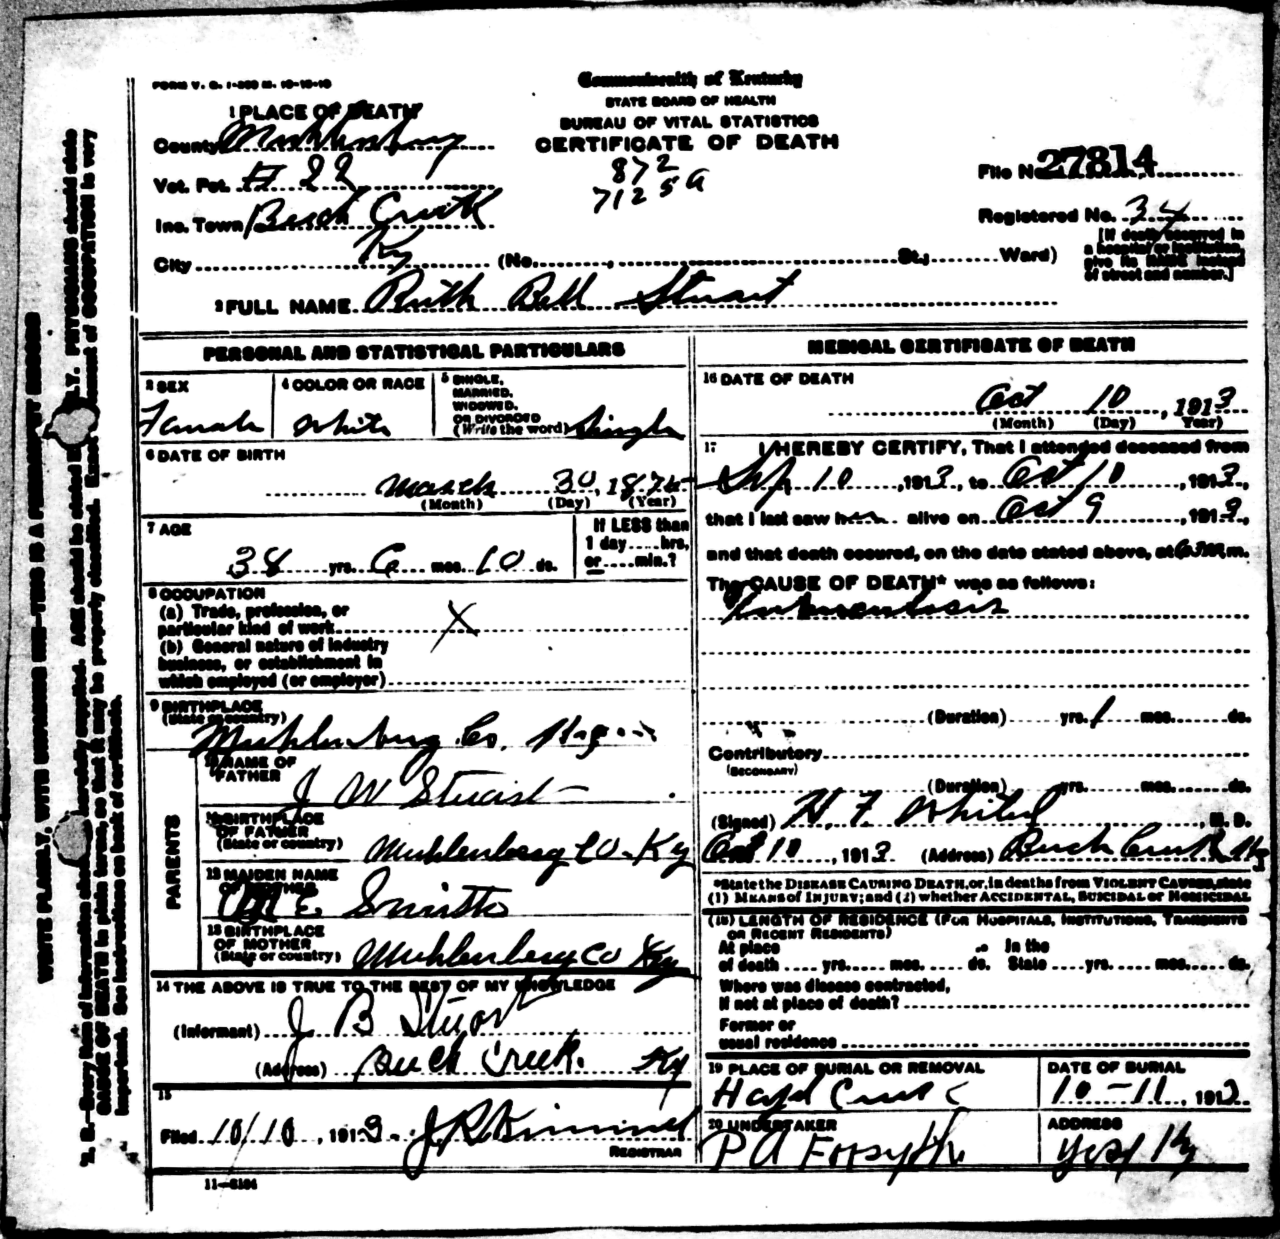 FORM V. S. 1-350 M. 10-18-10
Commonwealth of Kentucky
STATE BOARD OF HEALTH
BUREAU OF VITAL STATISTICS
CERTIFICATE OF DEATH
872
7125 a
1 PLACE OF DEATH
County Muhlenburg
Vot. Pct. # 22
Inc. Town Beech Creek
City Ky (No. , St.; Ward)
File No. 27814
Registered No. 34
[If death occurred in
a hospital or institution,
give its NAME instead
of street and number.]
2 FULL NAME Ruth Bell Stuart
PERSONAL AND STATISTICAL PARTICULARS
3 SEX
Female
4 COLOR OR RACE
White
5 SINGLE,
MARRIED,
WIDOWED,
OR DIVORCED
(Write the word) Single
6 DATE OF BIRTH
March 30, 187
(Month) (Day) (Year)
7 AGE
38 yrs. 6 mos. 10 ds.
If LESS than
1 day hrs.
or min.?
8 OCCUPATION
(a) Trade, profession, or
particular kind of work X
(b) General nature of industry
business, or establishment in
which employed (or employer)
9 BIRTHPLACE
(State or country)
Muhlenburg Co. Ky
10 NAME OF
FATHER
J W Stuart
11 BIRTHPLACE
OF FATHER
(State or country) Muhlenberg CO - Ky
PARENTS
12 MAIDEN NAME
OF MOTHER
M E Smith
13 BIRTHPLACE
OF MOTHER
(State or country) Muhlenberg CO Ky
14 THE ABOVE IS TRUE TO THE BEST OF MY KNOWLEDGE
(Informant) J B Stuart
(Address) Beech Creek. Ky
15
Filed 10/10, 1913 J R Kimmel
REGISTRAR
11—6184
MEDICAL CERTIFICATE OF DEATH
16 DATE OF DEATH
Oct 10, 1913
(Month) (Day) Year)
17 I HEREBY CERTIFY, That I attended deceased from
Sep 10, 1913, to Oct 10, 1913,
that I last saw her alive on Oct 9, 1913,
and that death occured, on the date stated above, at 6 m.
The CAUSE OF DEATH* was as follows:
Tuberculosis
(Duration) yrs. 1 mos. ds.
Contributory
(SECONDARY)
(Duration) yrs. mos. ds.
(Signed) H. F. Whited, M. D.
Oct 10, 1913 (Address) Beech Creek Ky
*State the DISEASE CAUSING DEATH, or, in deaths from VIOLENT CAUSES, state
(1) MEANS of INJURY; and (2) whether ACCIDENTAL, SUICIDAL or HOMICIDAL
(18) LENGTH OF RESIDENCE (FOR HOSPITALS, INSTITUTIONS, TRANSIENTS
OR RECENT RESIDENTS)
At place In the
of death yrs. mos. ds. State yrs. mos. ds.
Where was disease contracted,
if not at place of death?
Former or
usual residence
19 PLACE OF BURIAL OR REMOVAL
DATE OF BURIAL
10-11, 191
20 UNDERTAKER
P A Forsyth
ADDRESS
Ky
N. B.—Every item of information should be carefully supplied. AGE should be stated EXACTLY. PHYSICIANS should state
CAUSE OF DEATH in plain terms, so that it may be properly classified. Exact statement of OCCUPATION is very
important. See instructions on back of certificate.
WRITE PLAINLY, WITH UNFADING INK—THIS IS A PERMANENT RECORD